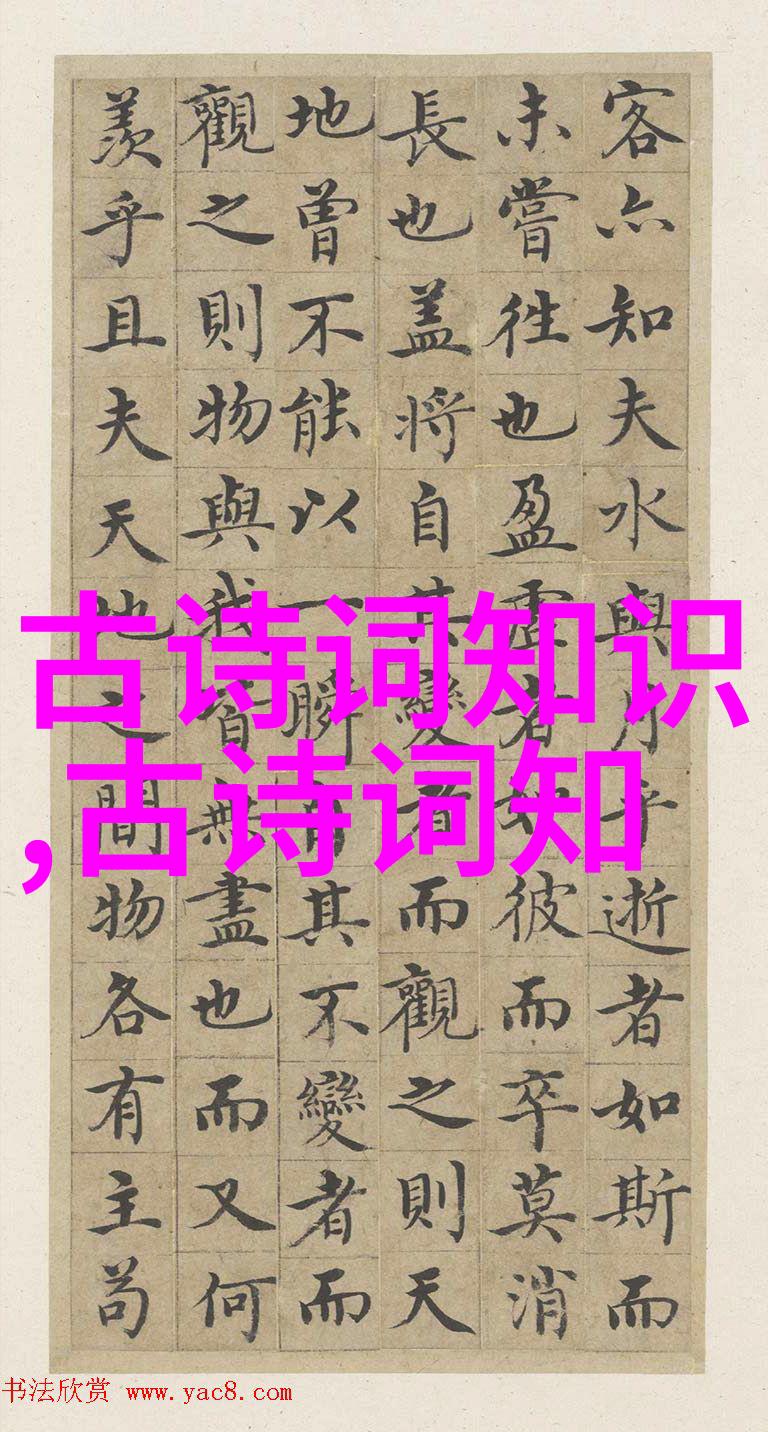 客亦知夫水與月乎逝者如斯而
未嘗往也盈虛者如彼而卒莫消
長也盖將自其變者而觀之則天
地曾不能以一瞬自其不變者而
觀之則物與我皆無盡也而又何
羨乎且夫天地之間物各有主苟
古诗词知识
,古诗词知
书法欣赏 www.yac8.com